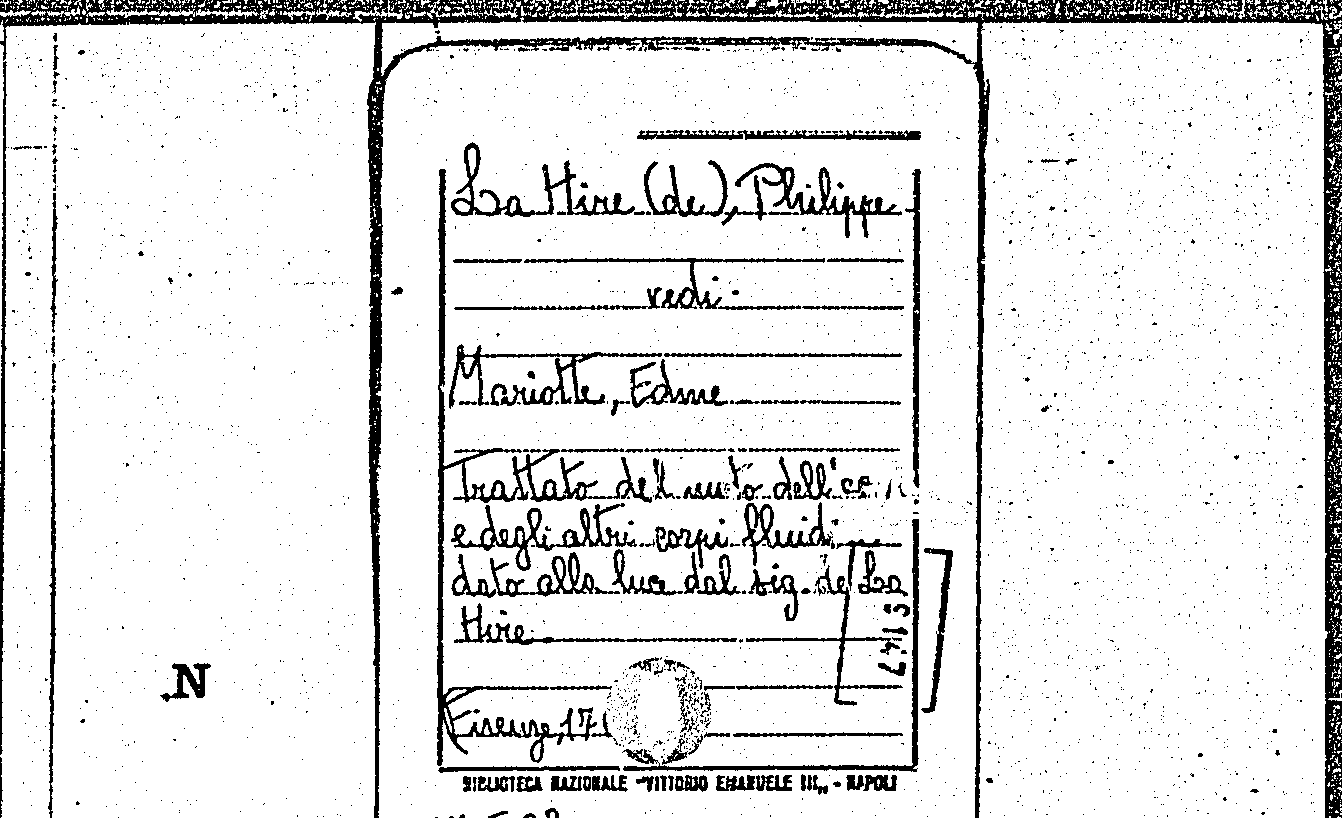 La Hire (de), Philippe
vedi:
Mariotte, Edme
Trattato del moto dell'
e degli altri corpi fluidi
dato alla luce dal sig. de La
Hire
5147
Firenze, 17
BIBLIOTECA NAZIONALE "VITTORIO EMANUELE III„ - NAPOLI
.N